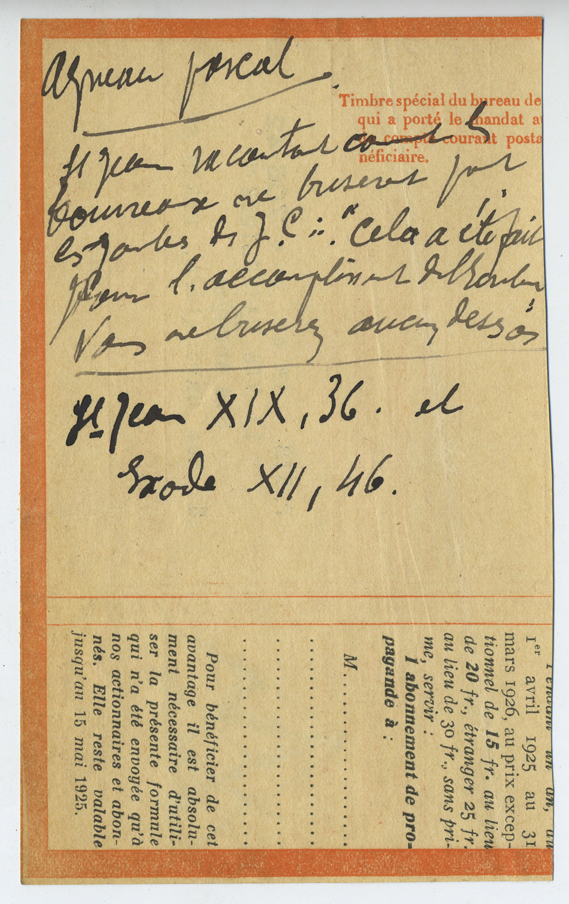 Agneau pascal
Timbre spécial du bureau de
qui a porté le mandat au
compte courant posta
néficiaire.
St Jean racontant comt les
bourreaux ne briserent pas
les jambes de J. C. : "cela a été fait
pour l'accomplissmt de l'
Vous ne briserez aucun de ses os
St Jean XIX, 36. et
Exode XII, 46.
1er avril 1925 au 31
mars 1926, au prix excep-
tionnel de 15 fr. au lieu
de 20 fr., étranger 25 fr.
au lieu de 30 fr., sans pri-
me, servir :
1 abonnement de pro-
pagande à :
M.
Pour bénéficier de cet
avantage il est absolu-
ment nécessaire d'utili-
ser la présente formule
qui n'a été envoyée qu'à
nos actionnaires et abon-
nés. Elle reste valable
jusqu'au 15 mai 1925.